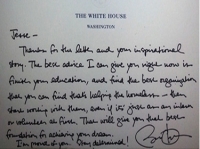 THE WHITE HOUSE
WASHINGTON
Jesse —
Thanks for the letter, and your inspirational
story. The best advice I can give you right now is
finish your education, and find the best organization
that you can find that's helping the homeless — then
start working with them, even if it's just as an intern
or volunteer at first. That will give you that best
foundation for achieving your dream.
I'm proud of you. Stay determined!